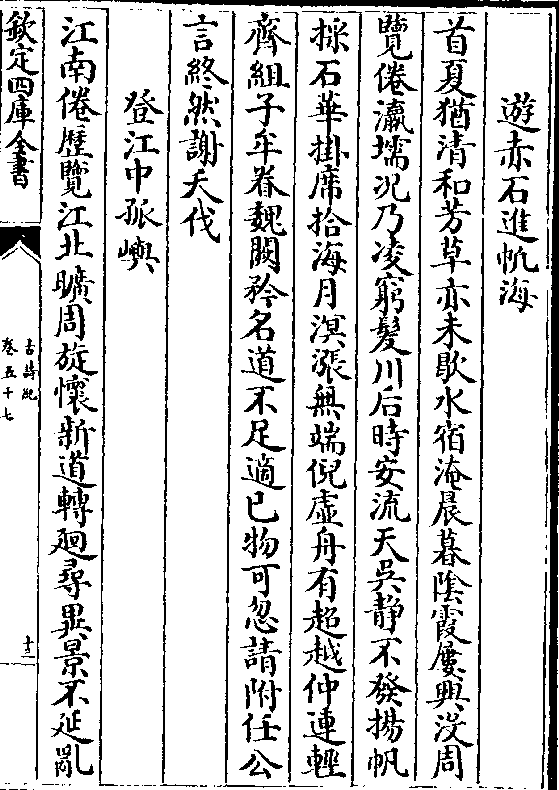 遊赤石進帆海
首夏猶清和芳草亦未歇水宿淹晨暮陰霞屢興沒周
覽倦瀛壖况乃凌窮髮川后時安流天吳静不發揚帆
採石華掛席拾海月溟漲無端倪虛舟有超越仲連輕
齊組子牟眷魏闕矜名道不足適已物可忽請附任公
言終然謝天伐
登江中孤嶼
江南倦歷覽江北曠周旋懷新道轉迴尋異景不延亂
欽定四庫全書
古詩紀
卷五十七
十二